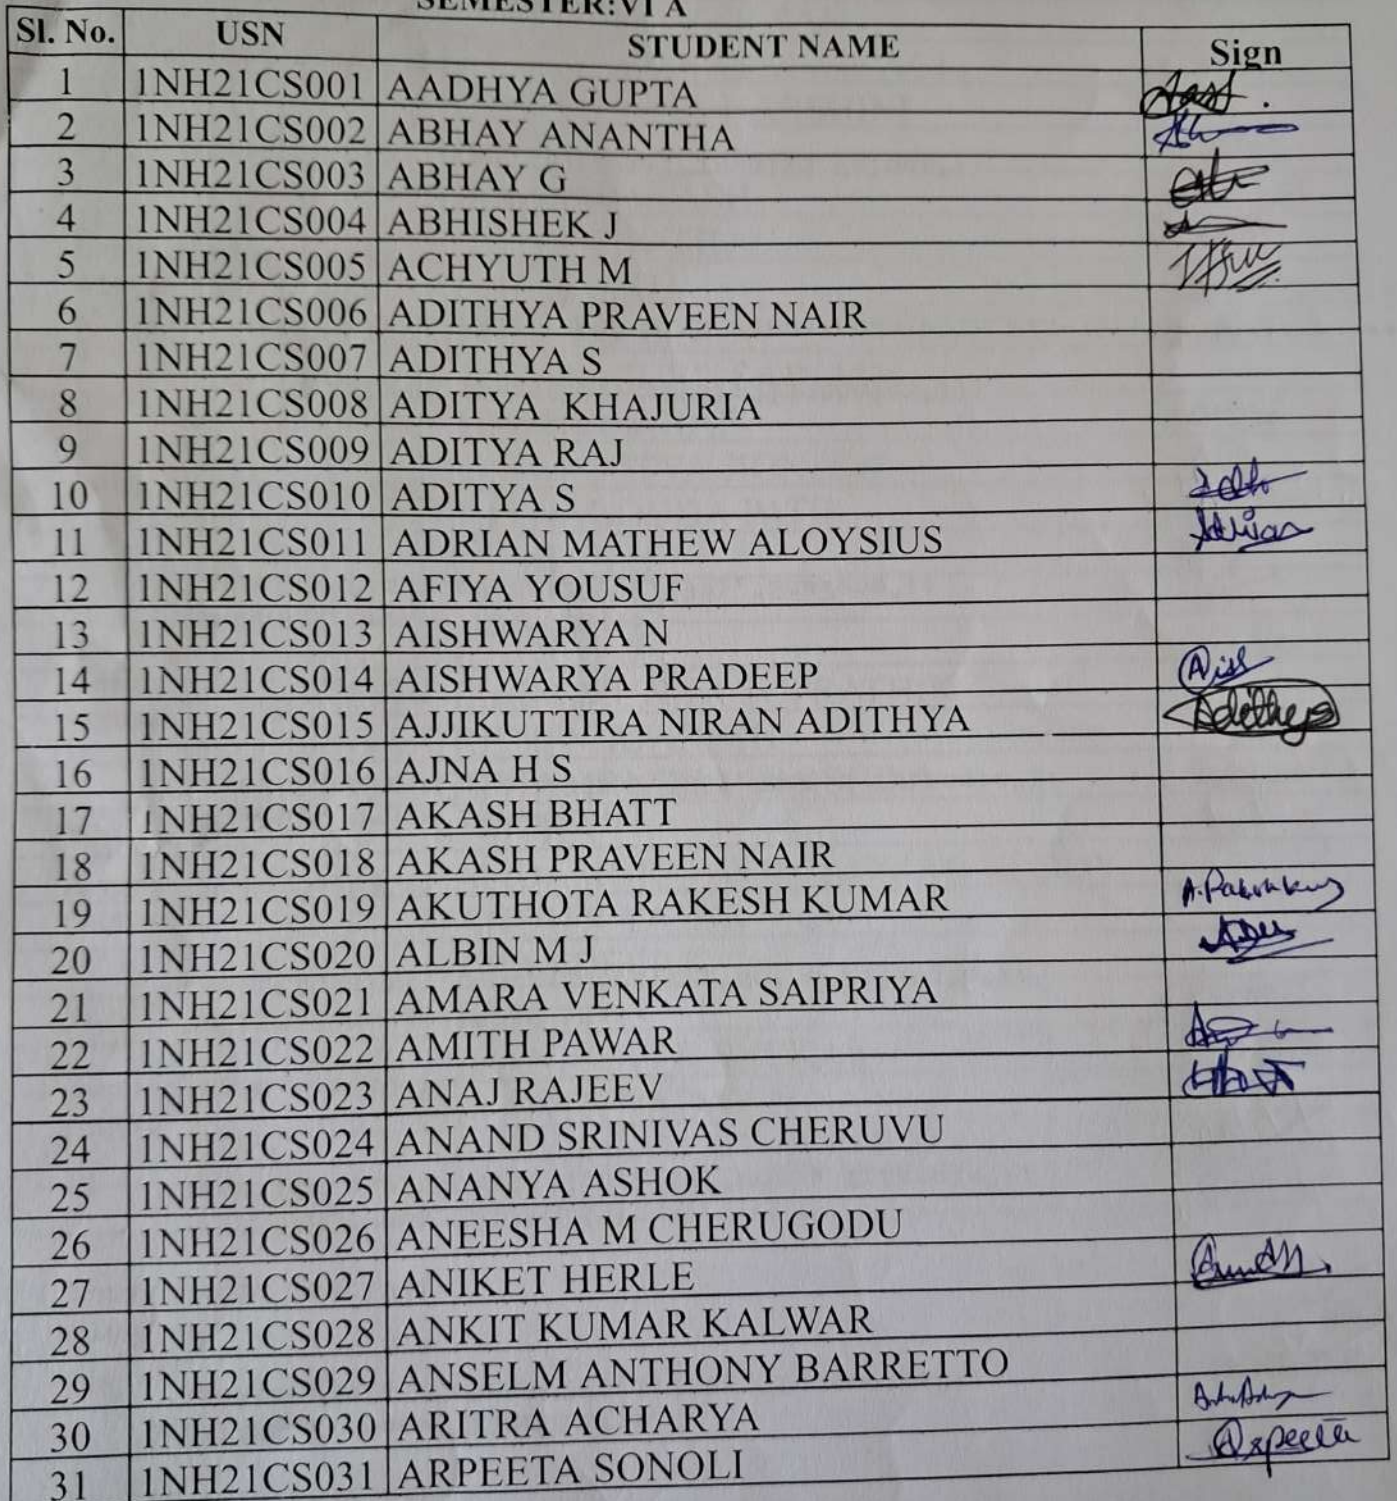 SEMESTER:VI A
Sl. No. USN STUDENT NAME Sign
1 1NH21CS001 AADHYA GUPTA
2 1NH21CS002 ABHAY ANANTHA
3 1NH21CS003 ABHAY G
4 1NH21CS004 ABHISHEK J
5 1NH21CS005 ACHYUTH M
6 1NH21CS006 ADITHYA PRAVEEN NAIR
7 1NH21CS007 ADITHYA S
8 1NH21CS008 ADITYA KHAJURIA
9 1NH21CS009 ADITYA RAJ
10 1NH21CS010 ADITYA S
11 1NH21CS011 ADRIAN MATHEW ALOYSIUS Adrian
12 1NH21CS012 AFIYA YOUSUF
13 1NH21CS013 AISHWARYA N
14 1NH21CS014 AISHWARYA PRADEEP
15 1NH21CS015 AJJIKUTTIRA NIRAN ADITHYA Adithya
16 1NH21CS016 AJNA H S
17 1NH21CS017 AKASH BHATT
18 1NH21CS018 AKASH PRAVEEN NAIR
19 1NH21CS019 AKUTHOTA RAKESH KUMAR
20 1NH21CS020 ALBIN M J
21 1NH21CS021 AMARA VENKATA SAIPRIYA
22 1NH21CS022 AMITH PAWAR
23 1NH21CS023 ANAJ RAJEEV
24 1NH21CS024 ANAND SRINIVAS CHERUVU
25 1NH21CS025 ANANYA ASHOK
26 1NH21CS026 ANEESHA M CHERUGODU
27 1NH21CS027 ANIKET HERLE
28 1NH21CS028 ANKIT KUMAR KALWAR
29 1NH21CS029 ANSELM ANTHONY BARRETTO
30 1NH21CS030 ARITRA ACHARYA
31 1NH21CS031 ARPEETA SONOLI Arpeeta